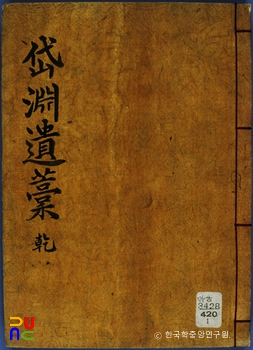 岱淵遺藁
乾
3428
420
1
© 한국학중앙연구원